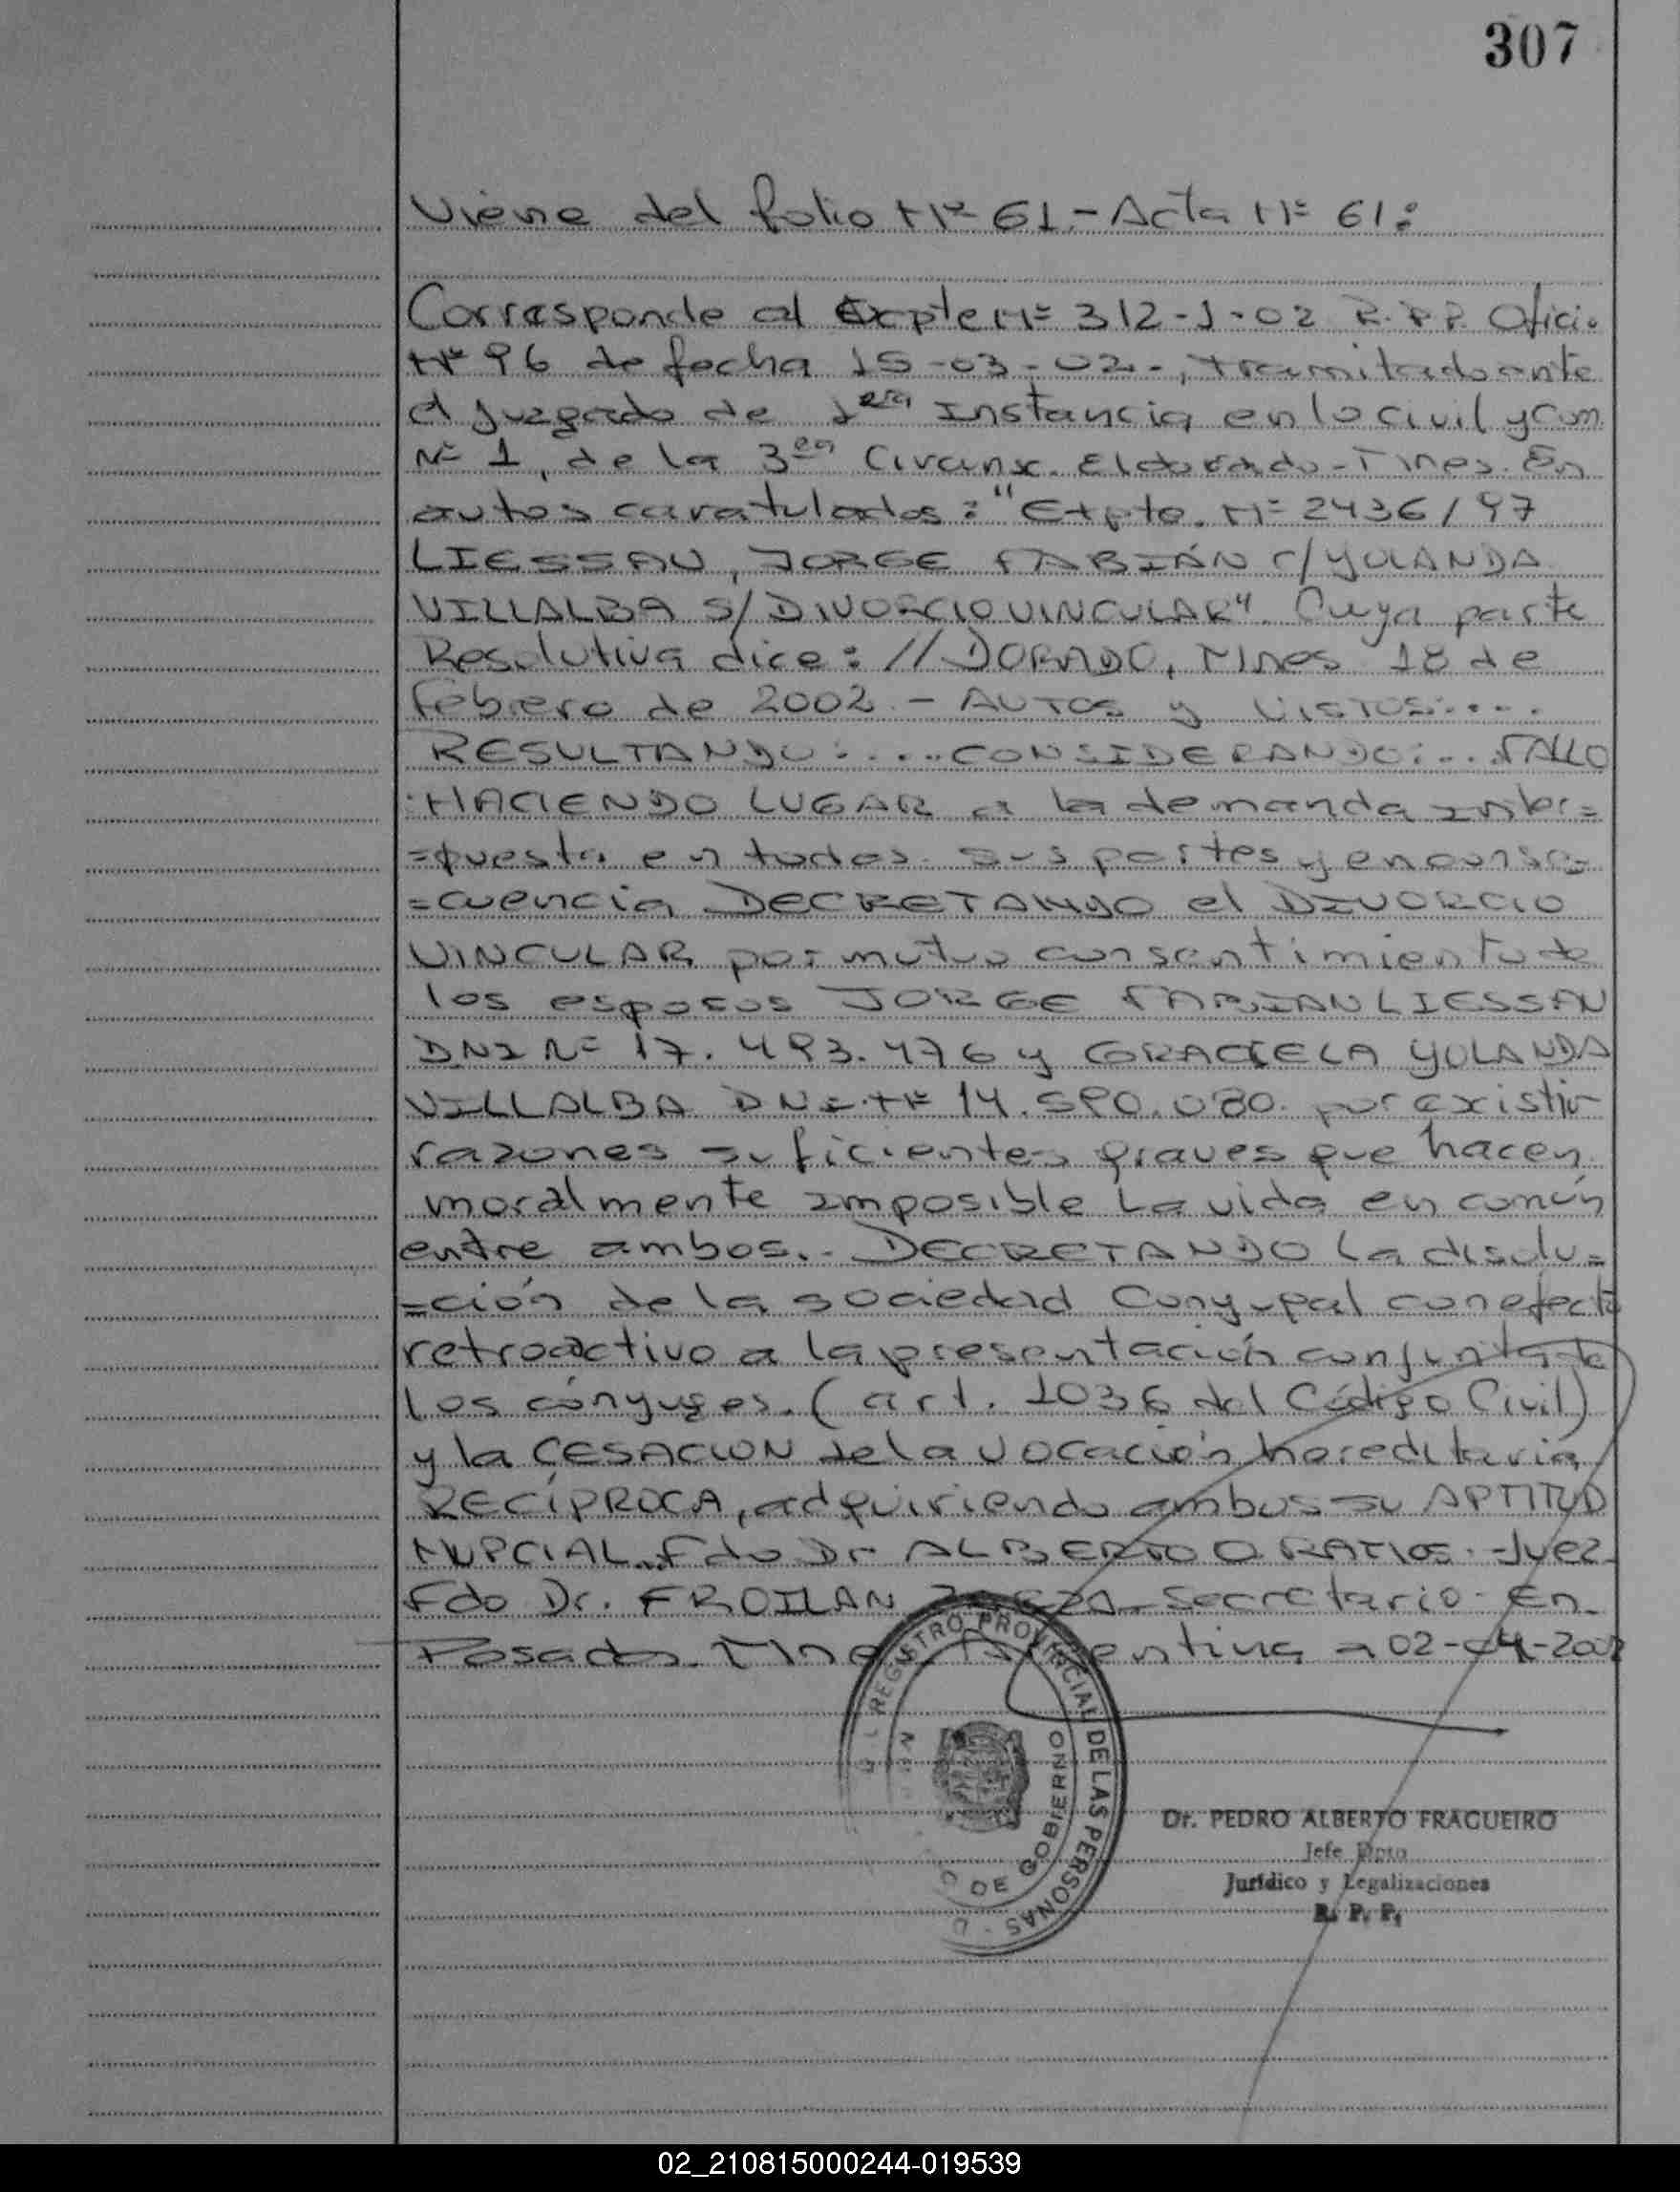 307
Viene del folio Nº 61.- Acta Nº 61:
Corresponde al Expte Nº 312-J-02 R.P.P. Oficio
Nº 96 de fecha 15-03-02-, tramitado ante
el Juzgado de 1era Instancia en lo civil y Com.
Nº 1, de la 3era Circunsc. Eldorado - Mnes. En
autos caratulados: "Expte. Nº 2436/97
LIESSAU, JORGE FABIÁN c/ YOLANDA
VILLALBA S/ DIVORCIO VINCULAR". Cuya parte
Resolutiva dice: //DORADO, Mnes 18 de
febrero de 2002.- AUTOS y VISTOS:....
RESULTANDO:....CONSIDERANDO:...FALLO
:HACIENDO LUGAR a la demanda inter=
=puesta en todas sus partes y en conse=
=cuencia DECRETANDO el DIVORCIO
VINCULAR por mutuo consentimiento de
los esposos JORGE FABIAN LIESSAU
DNI Nº 17.493.476 y GRACIELA YOLANDA
VILLALBA DNI Nº 14.590.080. por existir
razones suficientes graves que hacen
moralmente imposible la vida en común
entre ambos.. DECRETANDO la disolu=
=ción de la sociedad Conyugal con efecto
retroactivo a la presentación conjunta de
los cónyuges. (art. 1036 del Código Civil)
y la CESACION de la vocación hereditaria
RECÍPROCA, adquiriendo ambos su APTITUD
NUPCIAL.. Fdo Dr ALBERTO O RATIOS.-Juez-
Fdo Dr. FROILAN - Secretario. En
Posadas Mnes Argentina a 02-04-2002
REGISTRO PROVINCIAL DE LAS PERSONAS
DE GOBIERNO
Dr. PEDRO ALBERTO FRAGUEIRO
Jefe Dpto
Jurídico y Legalizaciones
R. P. P.
02_210815000244-019539